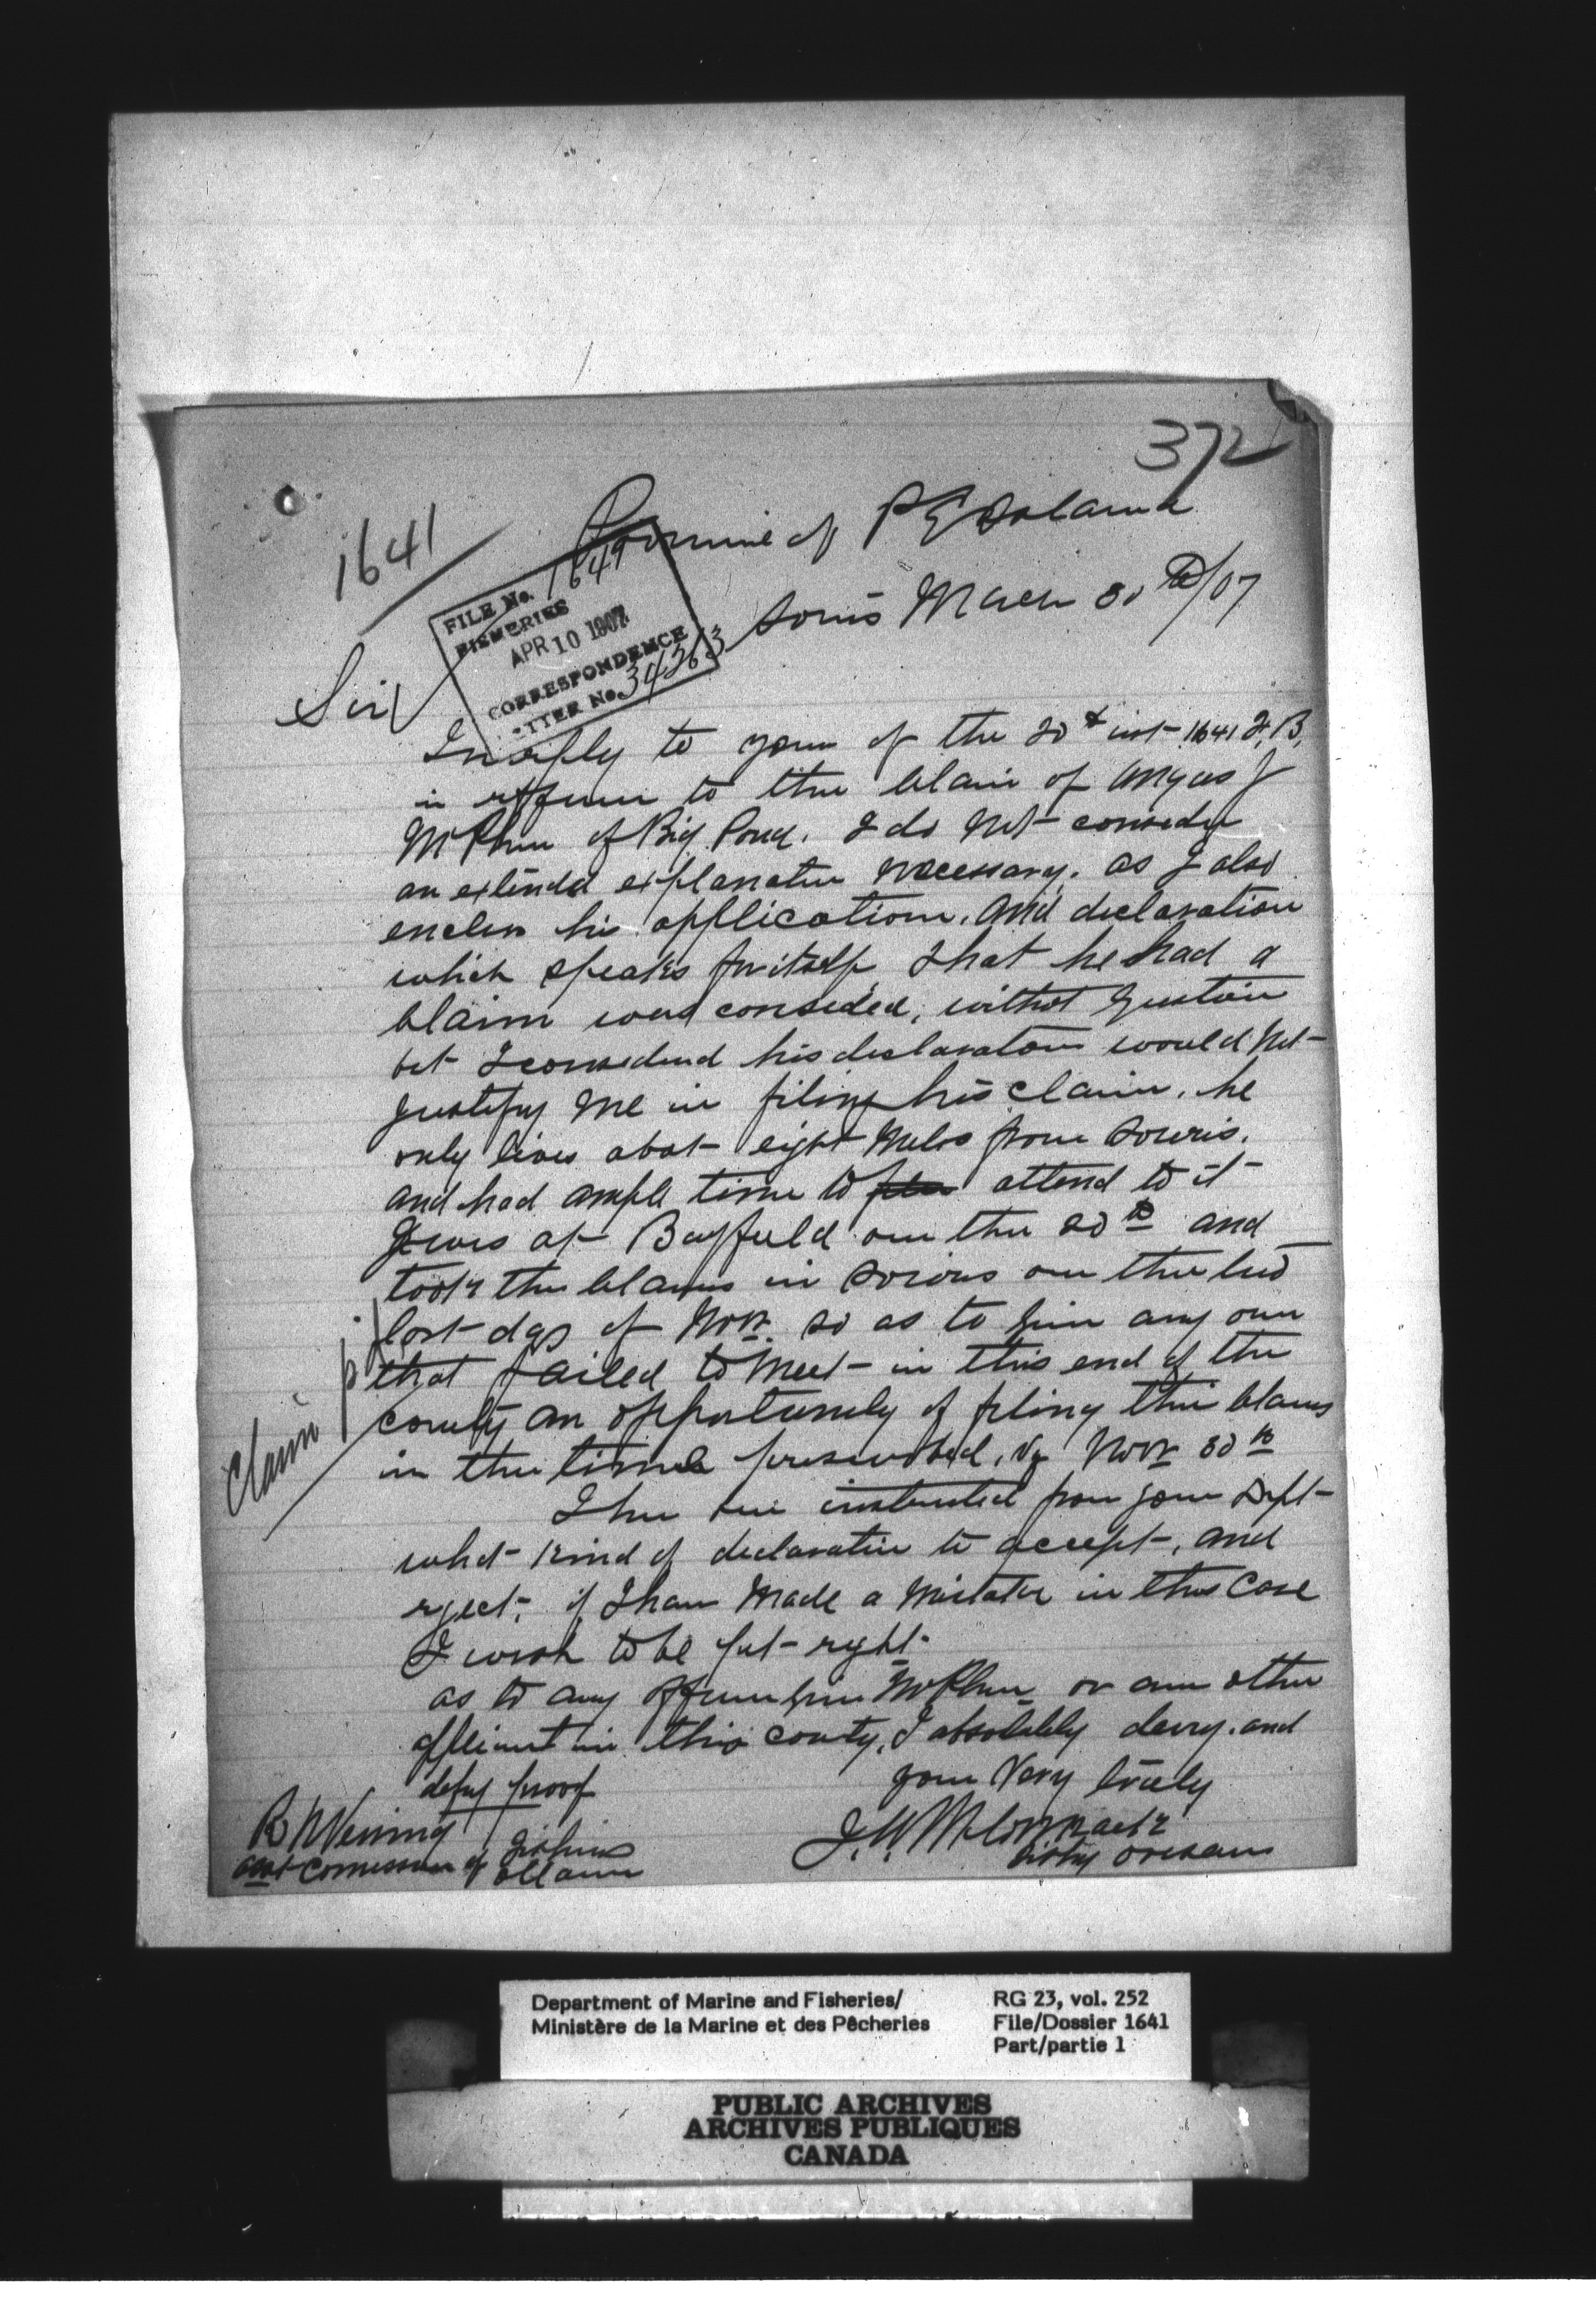 372
1641
Province of P E Island
Souris March 30th/07
FILE No. 1641
FISHERIES
APR 10 1907
CORRESPONDENCE
LETTER No. 34263
Sir
In reply to your of the 20th inst 1641 F.B.
in reffernce to the claim of Angus J
McPhee of Big Pond. I do Not consider
an extended explanation necessary. as I also
enclose his application. and declaration
which speaks for itself That he had a
claim was conseded, without question
but I considered his declaration would Not
justify me in filing his claim. he
only lives about eight Miles from Souris.
and had ample time to attend to it
I was at Bayfield on the 20th and
took the claims in Souris on the two
last days of Novr. so as to give any one
that failed to Meet in this end of the
county an opportunity of filing their claims
in the time prescribed, Vz Novr 30th
Claim
I have been instructed from your Dept
what kind of declaration to accept, and
reject; if I have Made a Mistake in this Case
I wish to be put right.
as to any offence give McPhee or any other
applicant in this county, I absolutely deny. and
defy proof
your Very truly
R N Venning
Asst Commissioner of Fisheries
Ottawa
J. W. McCormack
Fishy Overseer
Department of Marine and Fisheries/
Ministère de la Marine et des Pêcheries
RG 23, vol. 252
File/Dossier 1641
Part/partie 1
PUBLIC ARCHIVES
ARCHIVES PUBLIQUES
CANADA